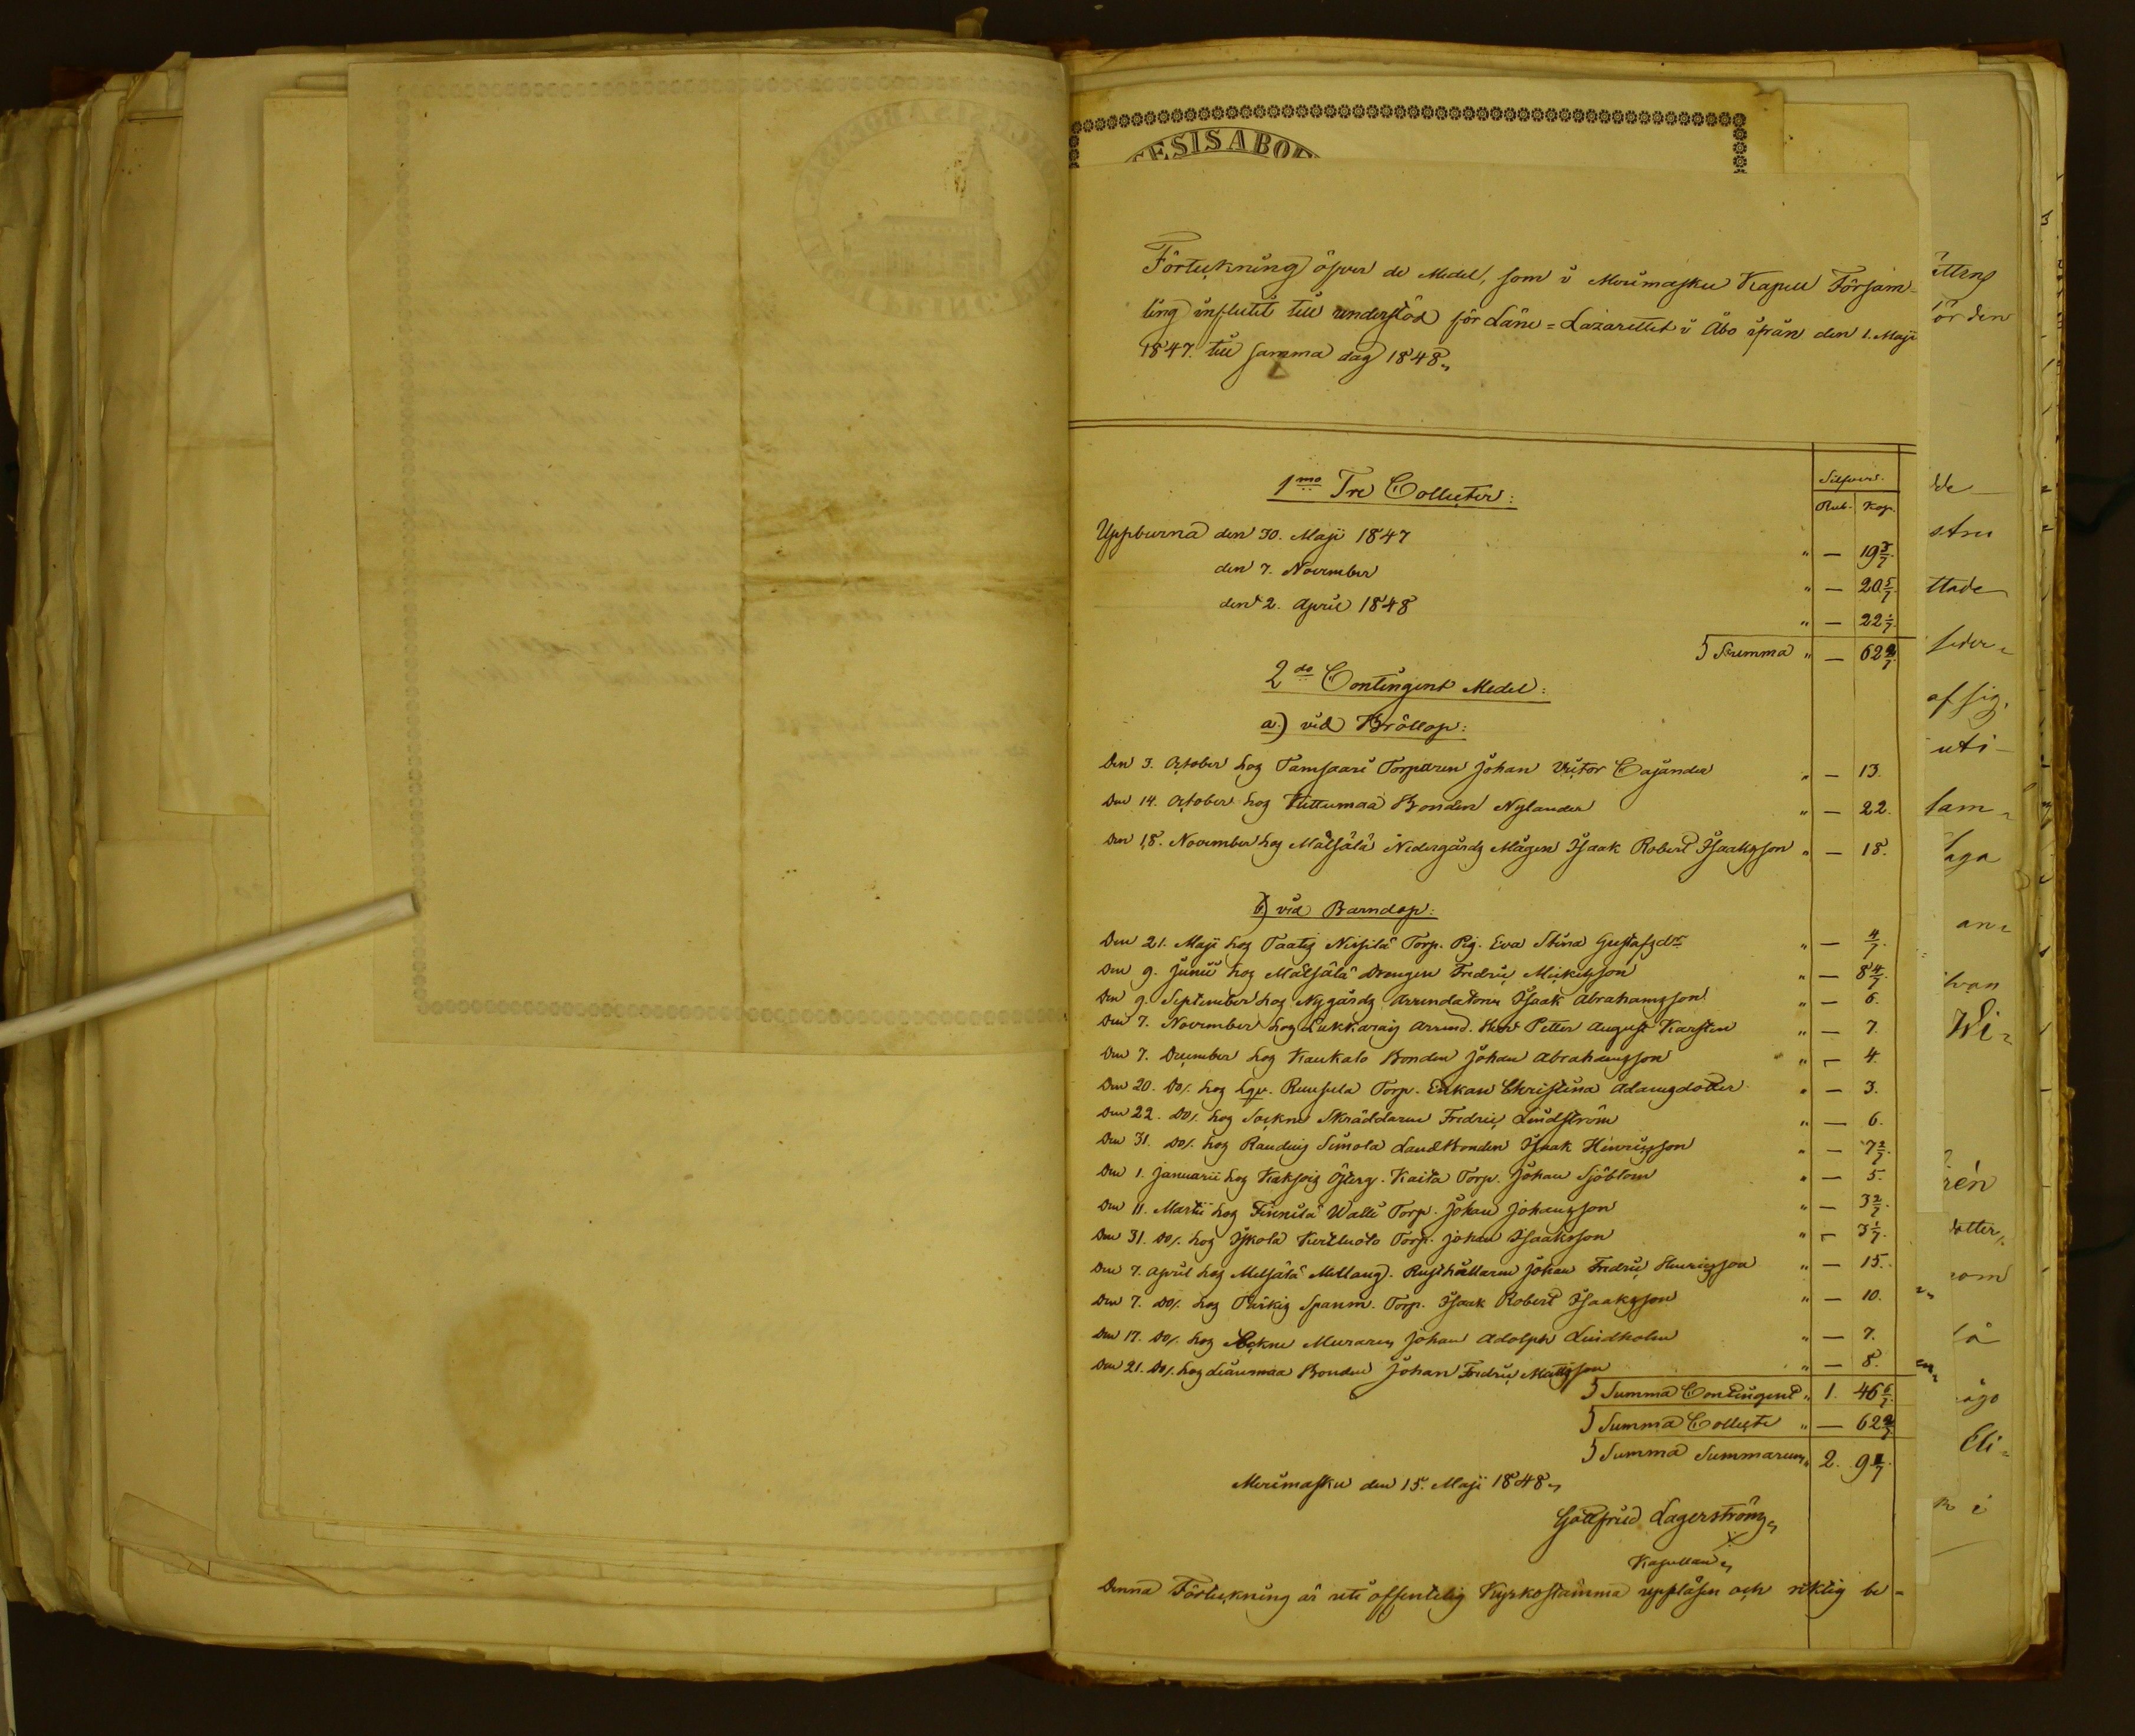 TESISABOE
Förtekning öfver de Medel, som i Merimasku Kapell Församling
ling influtit till understöd för Läne=Lazarettet i Åbo ifrån den 1. Maji
1847. till samma dag 1848.
Silfver.
Rub. Kop.
1mo Tre Collecter:
Uppburna den 30. Maji 1847 " — 19 3/7.
den 7. November " — 20 5/7.
den 2. April 1848 " — 22 1/7.
Summa " — 62 2/7.
2do Contingent Medel:
a.) vid Bröllop:
Den 3. October hos Tamsaari Torparen Johan Victor Cajander " — 13.
Den 14. October hos Bonden Nylander " — 22.
Den 18. November hos Nedergårds Mågen Isaak Robert Isaaksson " — 18.
b) vid Barndop:
Den 21. Maji hos Taatis Torp. Pig. Eva Stina Gustafsdr " — 4/7.
Den 9. Junii hos Drengen Fredric Mickelsson " — 8 4/7.
Den 9. September hos Nygårds Arrendatorn Isaak Abrahamsson " — 6.
Den 7. November hos Lukkarais Arrend. Herr Petter August Karsten " — 7.
Den 7. December hos Kaukalo Bonden Johan Abrahamsson " — 4.
Den 20. Do/. hos Ruusula Torp. Enkan Christina Adamsdotter " — 3.
Den 22. Do/. hos Sockne Skräddaren Fredric Lindström " — 6.
Den 31. Do/. hos Simola Landbonden Isaak Henricsson " — 7 2/7.
Den 1. Januarii hos Österg. Kaita Torp. Johan Sjöblom " — 5.
Den 11. Martii hos Finnilä Walli Torp. Johan Johansson " — 3 2/7.
Den 31. Do/. hos Iskola Torp. Johan Isaaksson " — 3 1/7.
Den 7. April hos Mellang. Rusthållaren Johan Fredric Henricsson " — 15.
Den 7. Do/. hos Spanm. Torp. Isaak Robert Isaaksson " — 10.
Den 17. Do/. hos Sockne Muraren Johan Adolph Lindholm " — 7.
Den 21. Do/. hos Bonden Johan Fredric Mattsson " — 8.
Summa Contingent " 1. 46 6/7.
Summa Collecte " — 62 2/7
Summa Summarum " 2. 9 1/7.
Merimasku den 15. Maji 1848.
Gottfried Lagerström
Kapellan
Denna Förtekning är uti offentelig Kyrkostämma uppläsen och riktig be=
ör den
stru
ttade
af sig.
uti
lam=
an=
Wi=
rén
som
Eli=